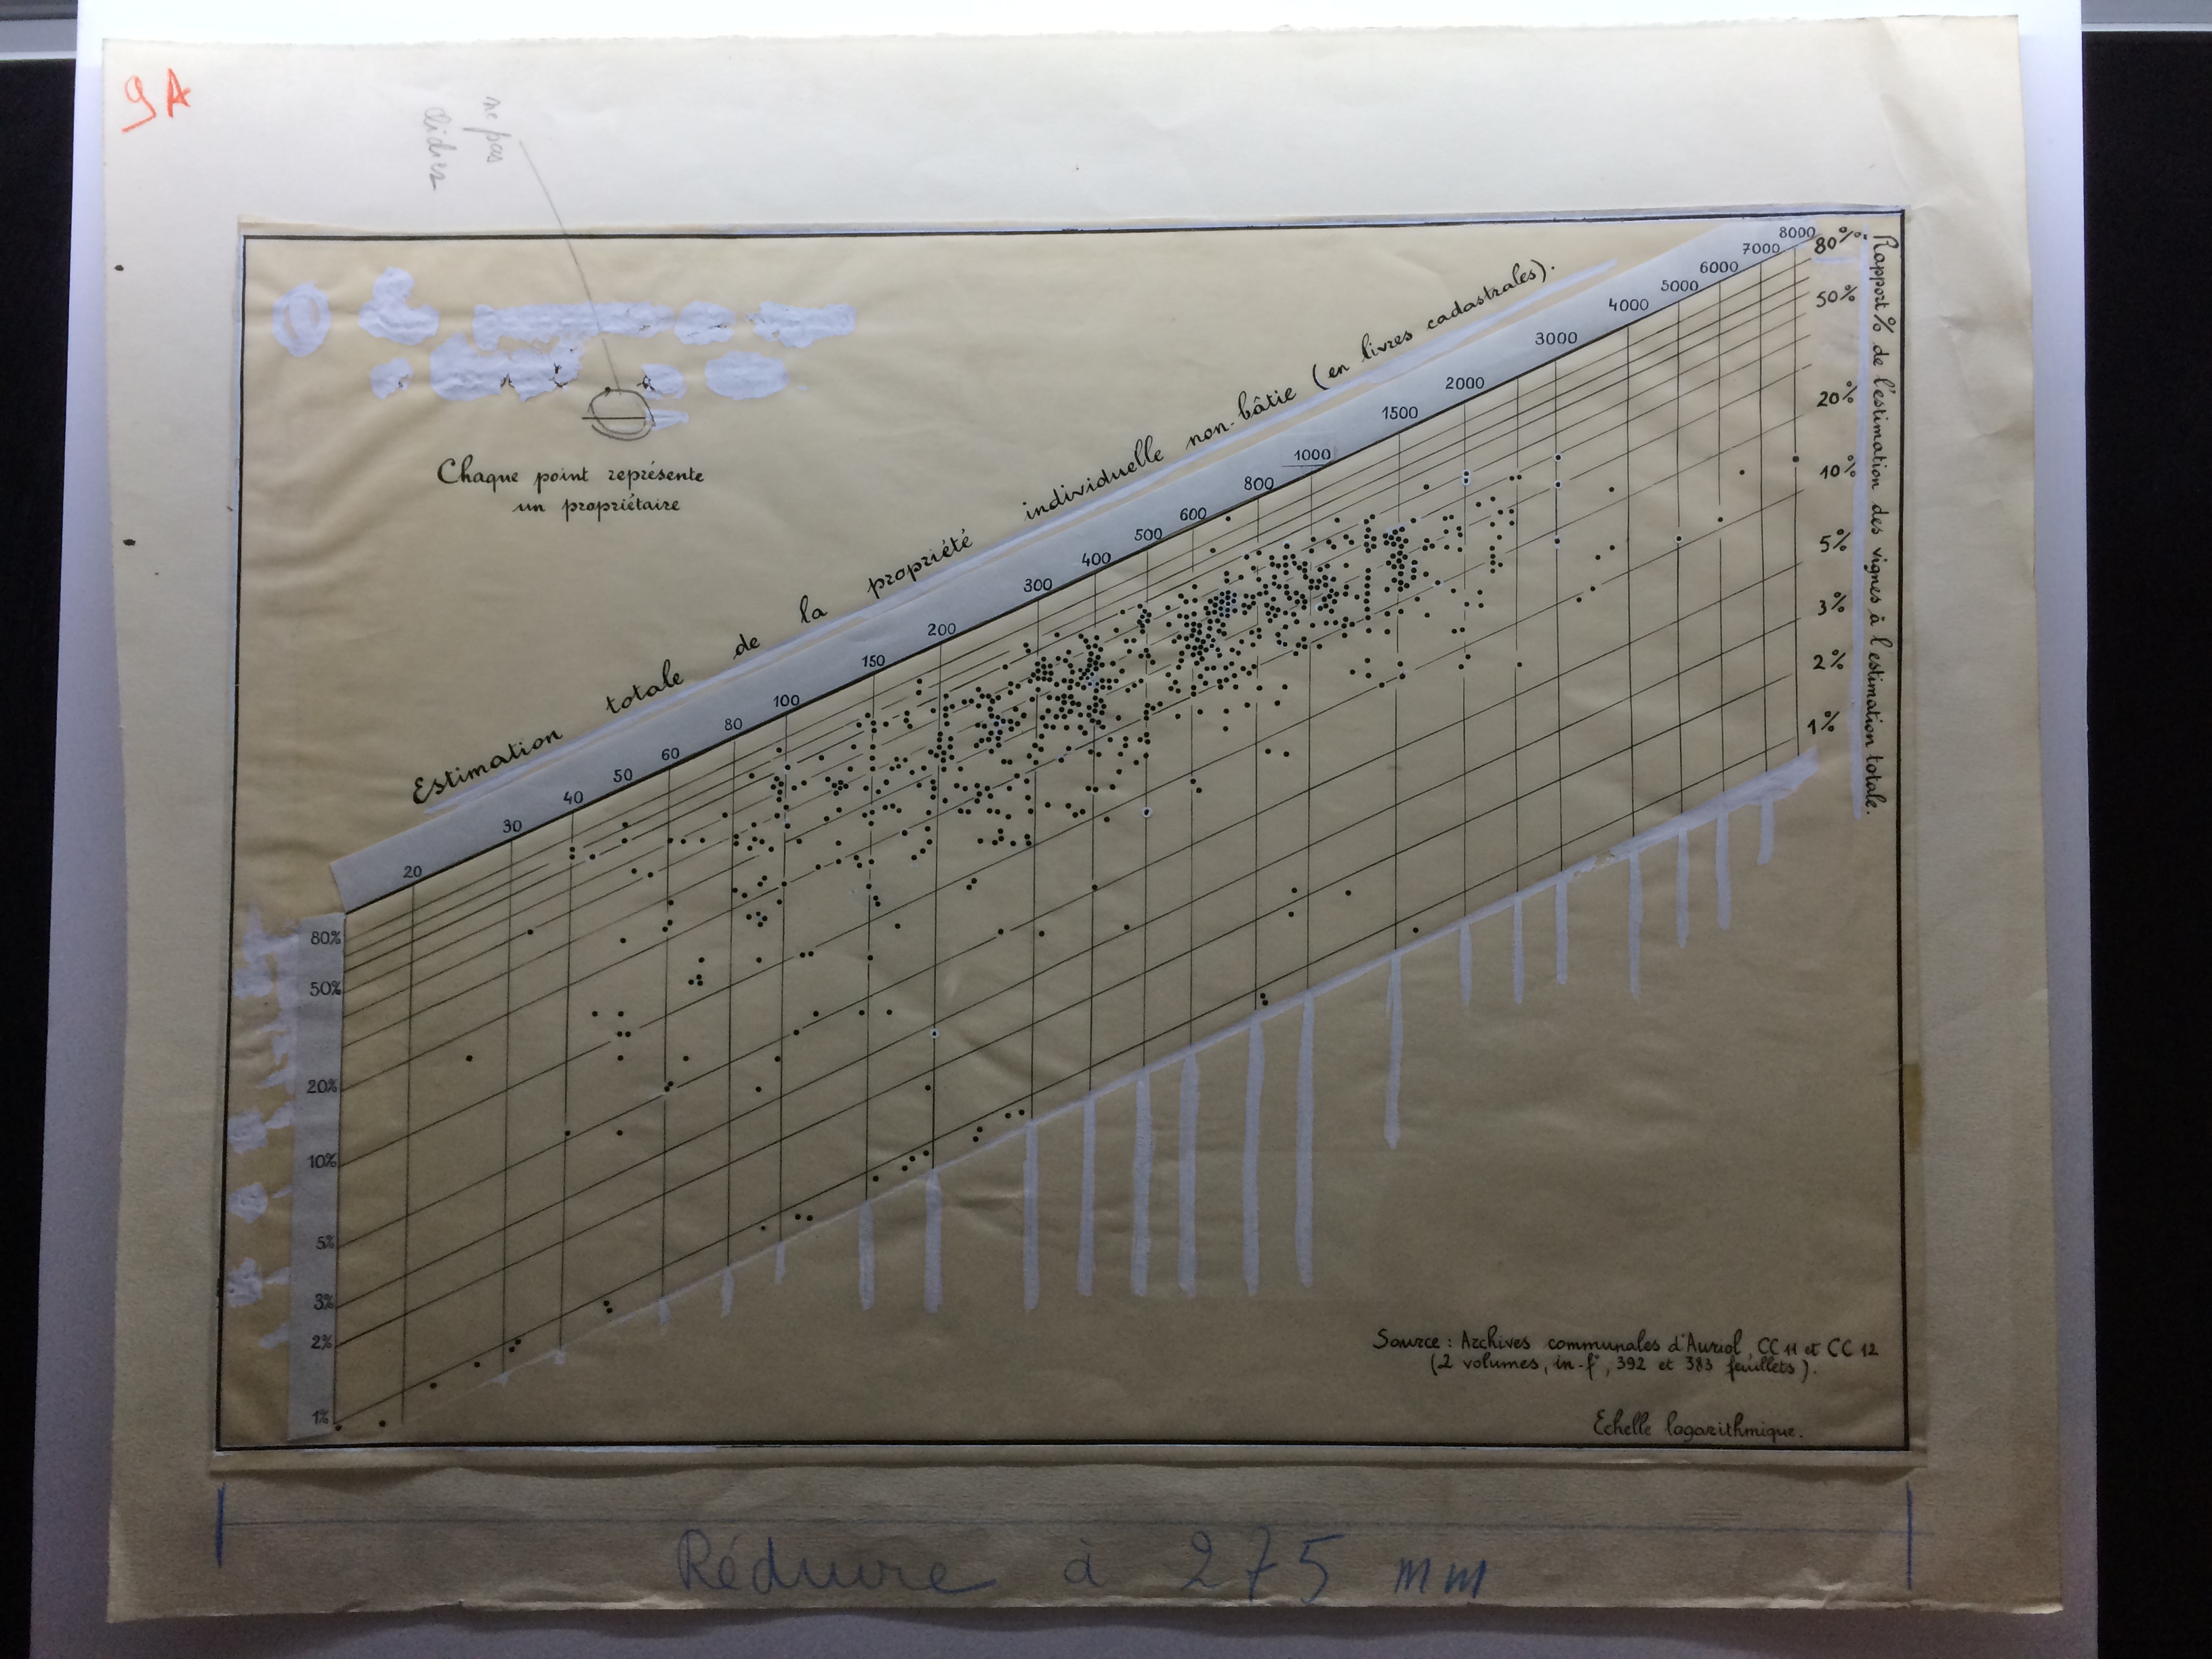 9A
ne pas
Chaque point représente
un propriétaire
Estimation totale de la propriété individuelle non-bâtie (en livres cadastrales).
20 30 40 50 60 80 100 150 200 300 400 500 600 800 1000 1500 2000 3000 4000 5000 6000 7000 8000
80%
50%
20%
10%
5%
3%
2%
1%
Rapport % de l'estimation des vignes à l'estimation totale.
80%
50%
20%
10%
5%
3%
2%
1%
Source : Archives communales d'Auriol, CC 11 et CC 12
(2 volumes, in-f°, 392 et 383 feuillets).
Echelle logarithmique.
Réduire à 275 mm